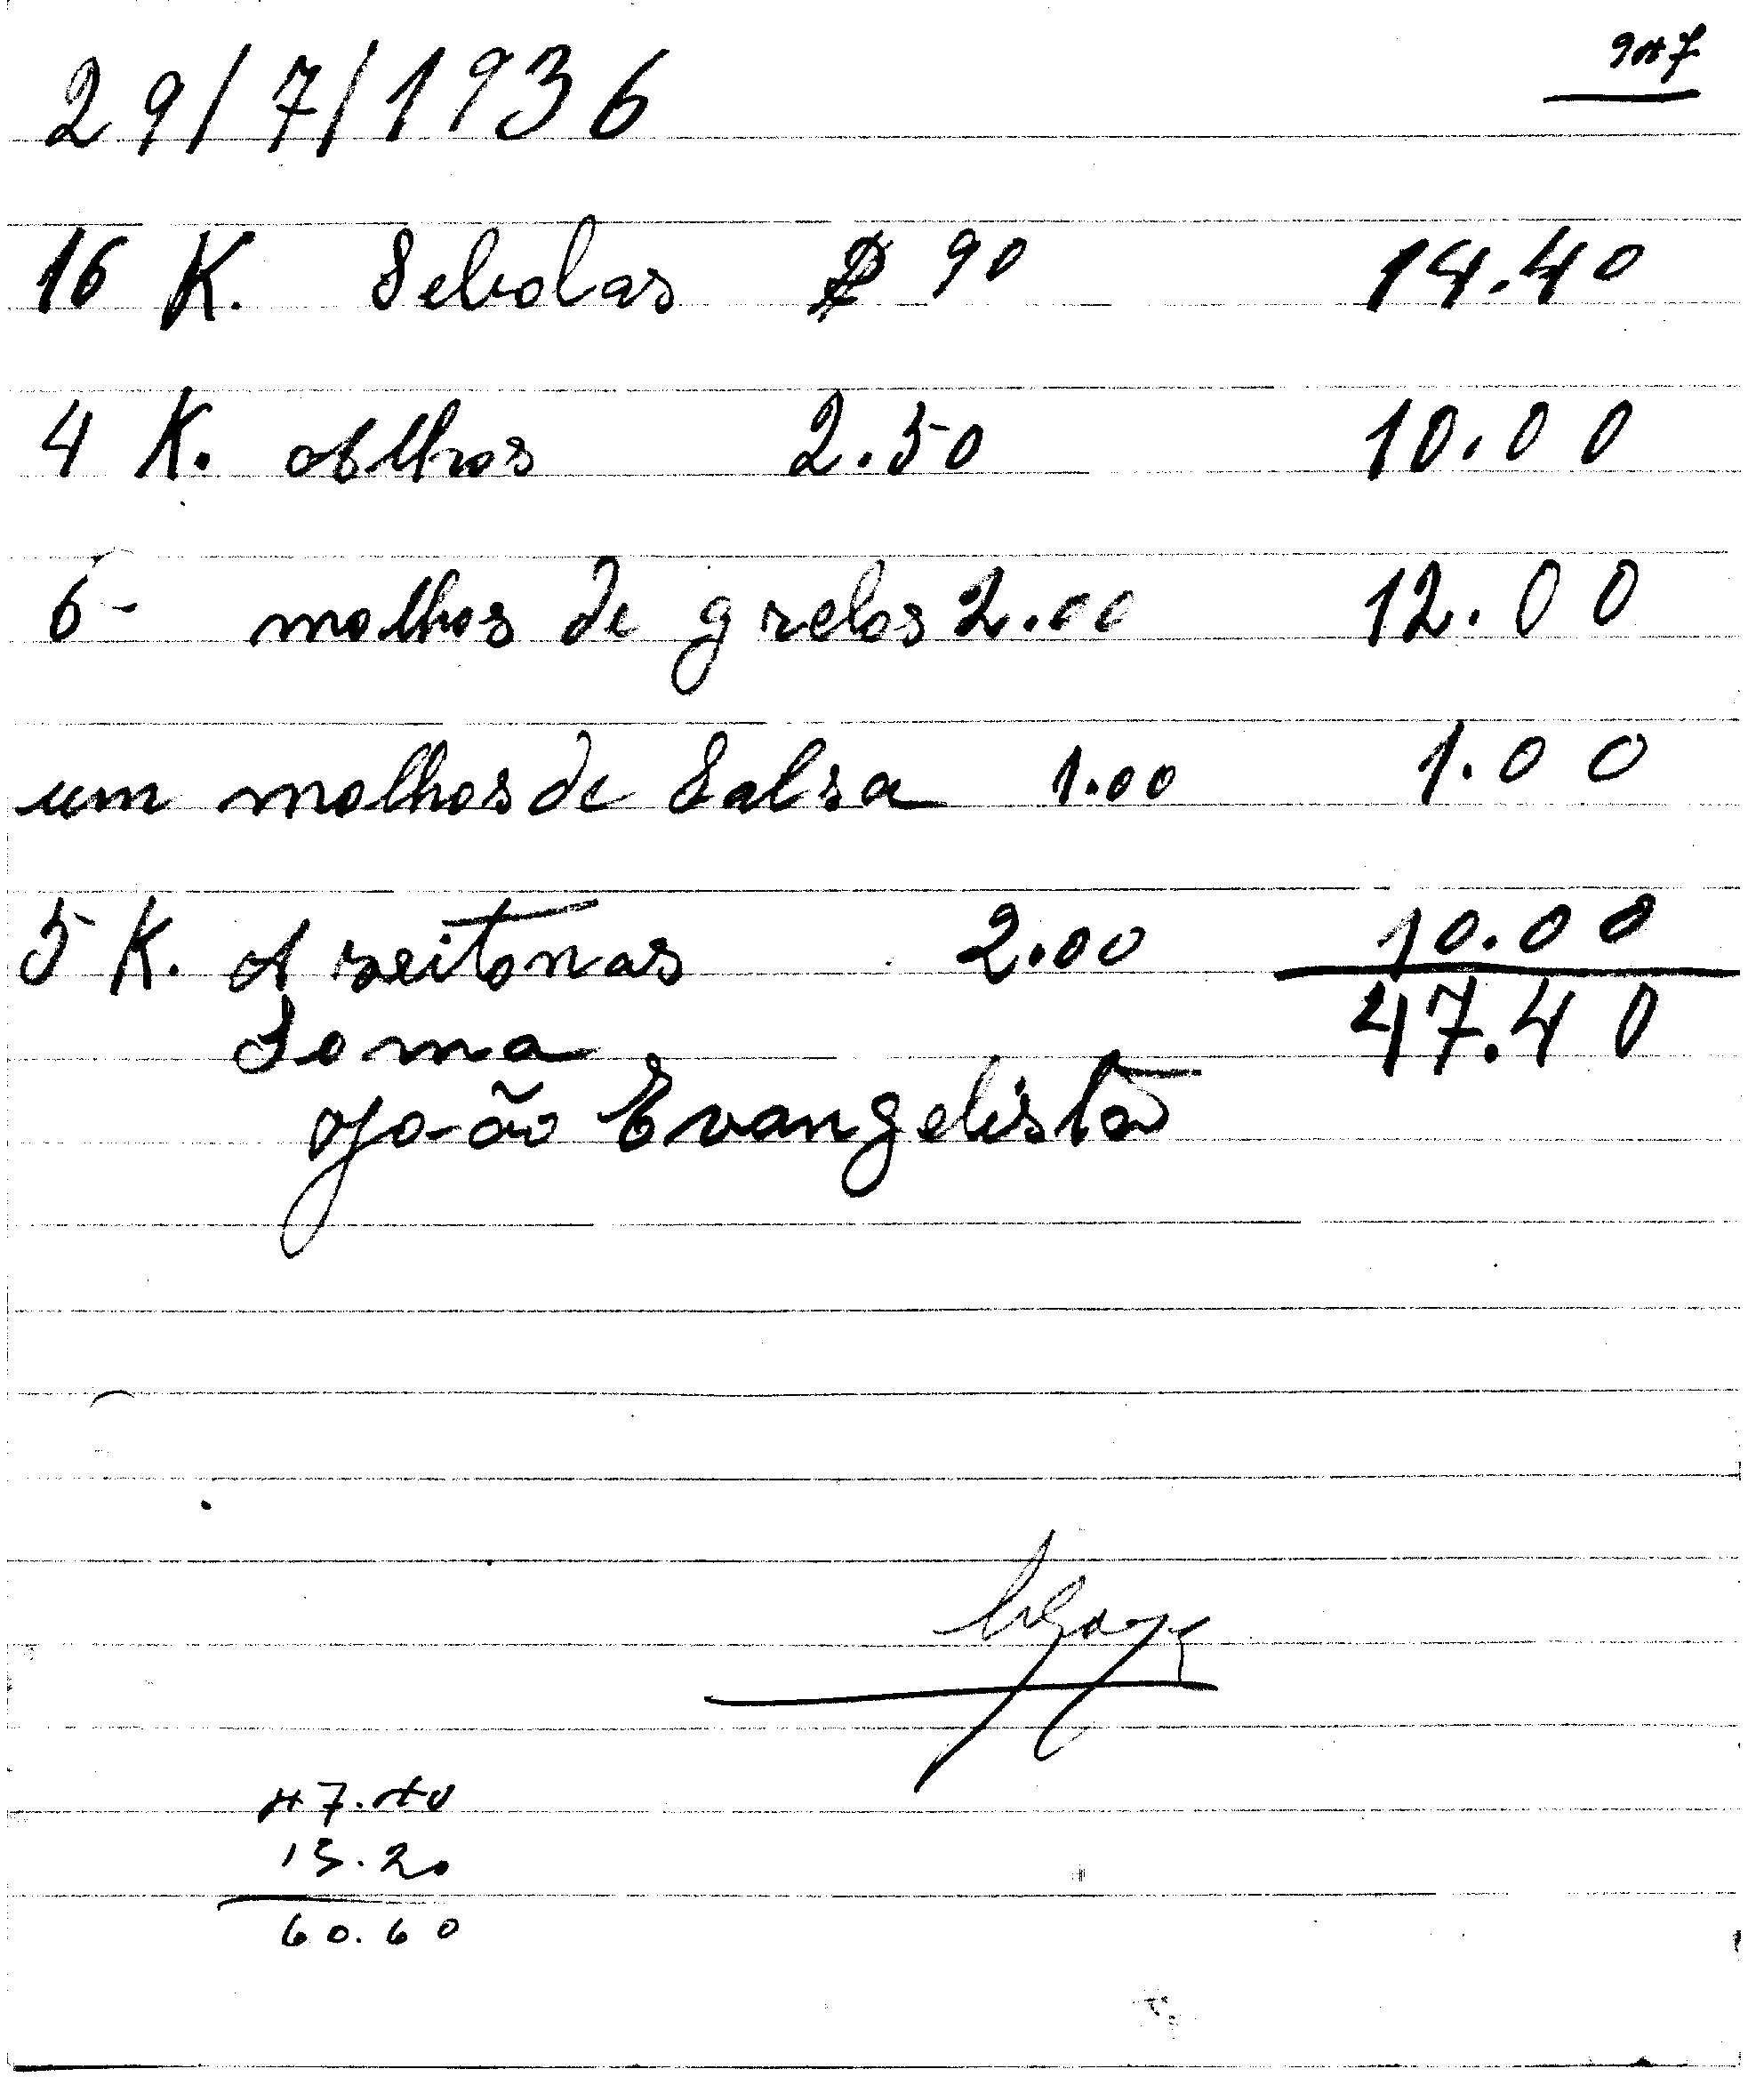 947
29/7/1936
16 K. Sebolas $90 14.40
4 K. Alhos 2.50 10.00
6- molhos de grelos 2.00 12.00
um molhos de Salsa 1.00 1.00
5 K. Azeitonas 2.00 10.00
Soma 47.40
João Evangelista
47.40
13.20
60.60